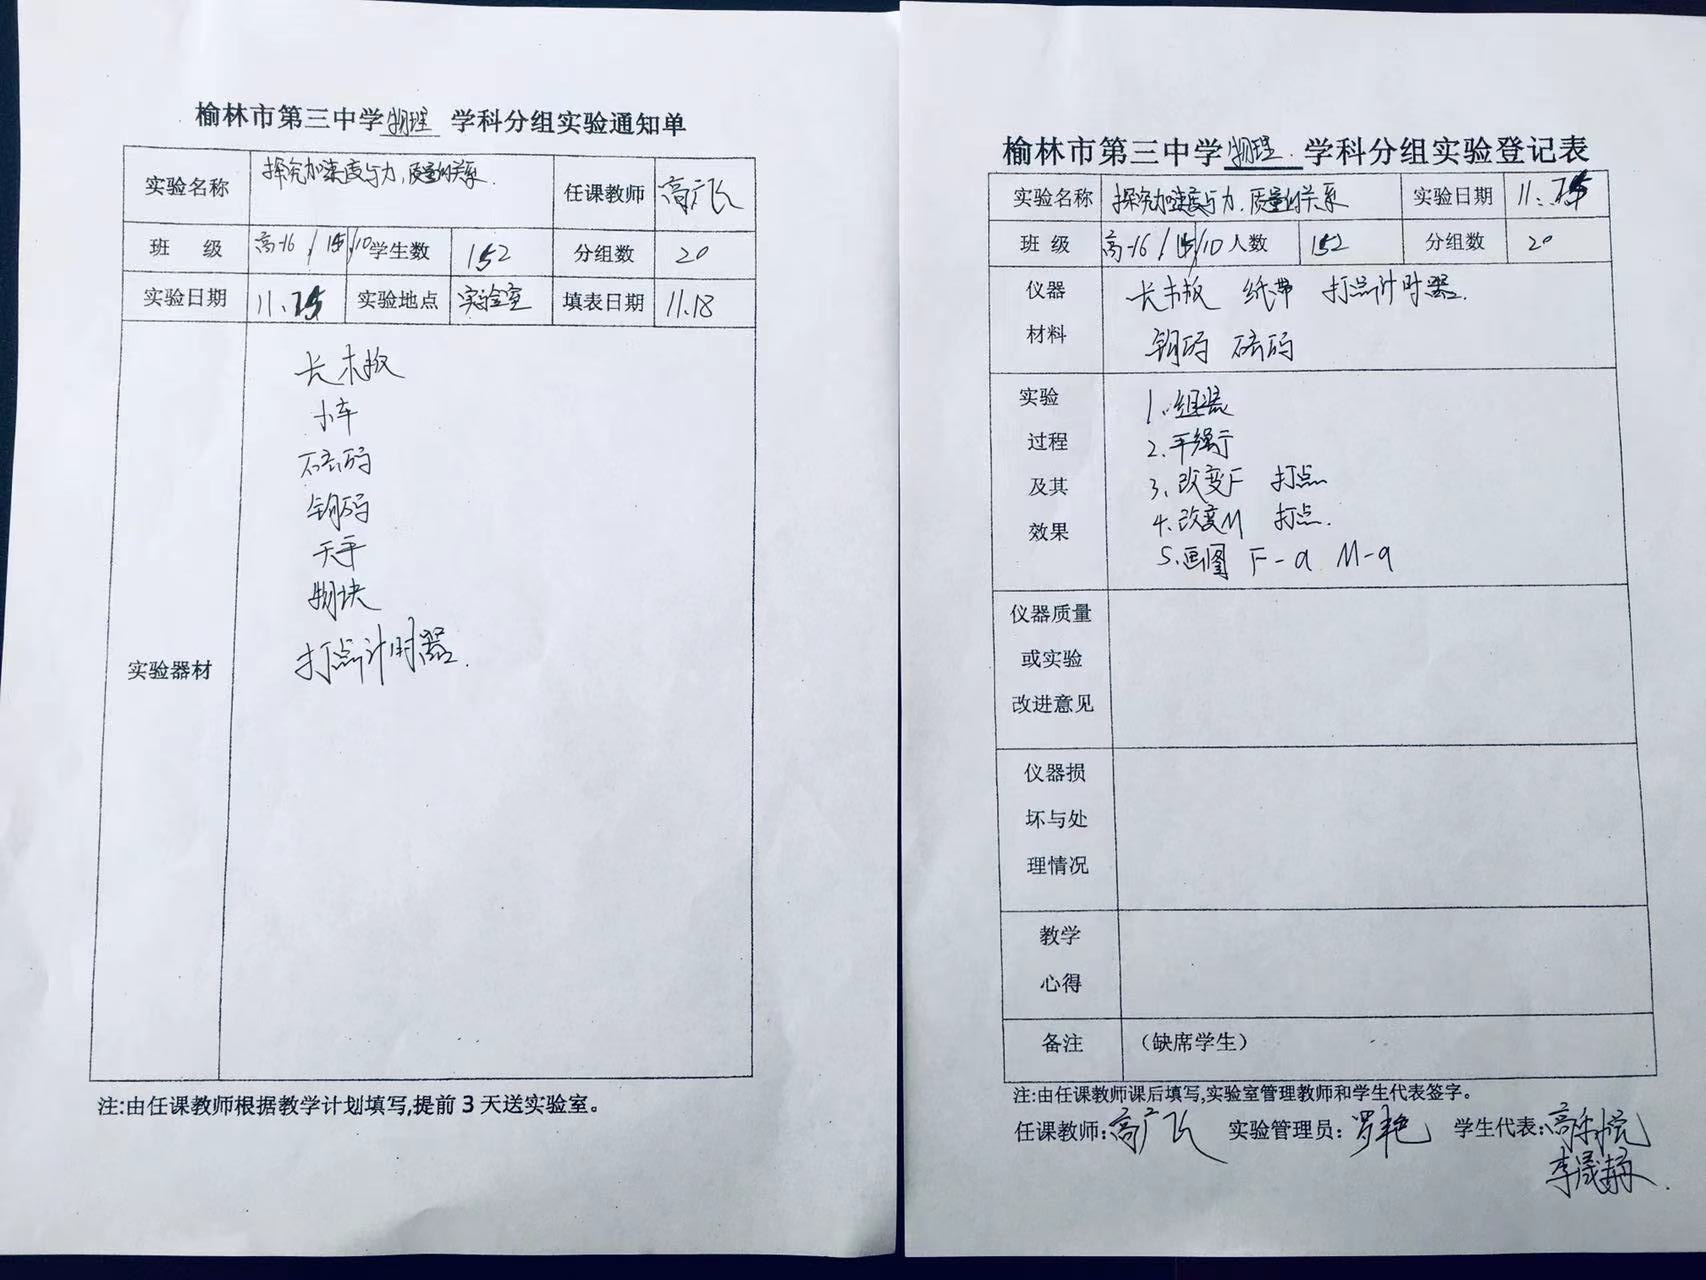 榆林市第三中学物理 学科分组实验通知单
实验名称 探究加速度与力,质量的关系. 任课教师 高广飞
班 级 高一16/15/10 学生数 152 分组数 20
实验日期 11. 实验地点 实验室 填表日期 11.18
实验器材
长木板
小车
砝码
钩码
天平
物块
打点计时器.
注:由任课教师根据教学计划填写,提前3天送实验室。
榆林市第三中学物理.学科分组实验登记表
实验名称 探究加速度与力.质量的关系 实验日期 11.
班 级 高一16/15/10 人数 152 分组数 20
仪器材料
长木板 纸带 打点计时器.
钩码 砝码
实验过程及其效果
1.组装
2.平衡
3.改变F 打点
4.改变M 打点.
5.画图 F-a M-a
仪器质量或实验改进意见
仪器损坏与处理情况
教学心得
备注 (缺席学生)
注:由任课教师课后填写,实验室管理教师和学生代表签字。
任课教师:高广飞 实验管理员: 学生代表: